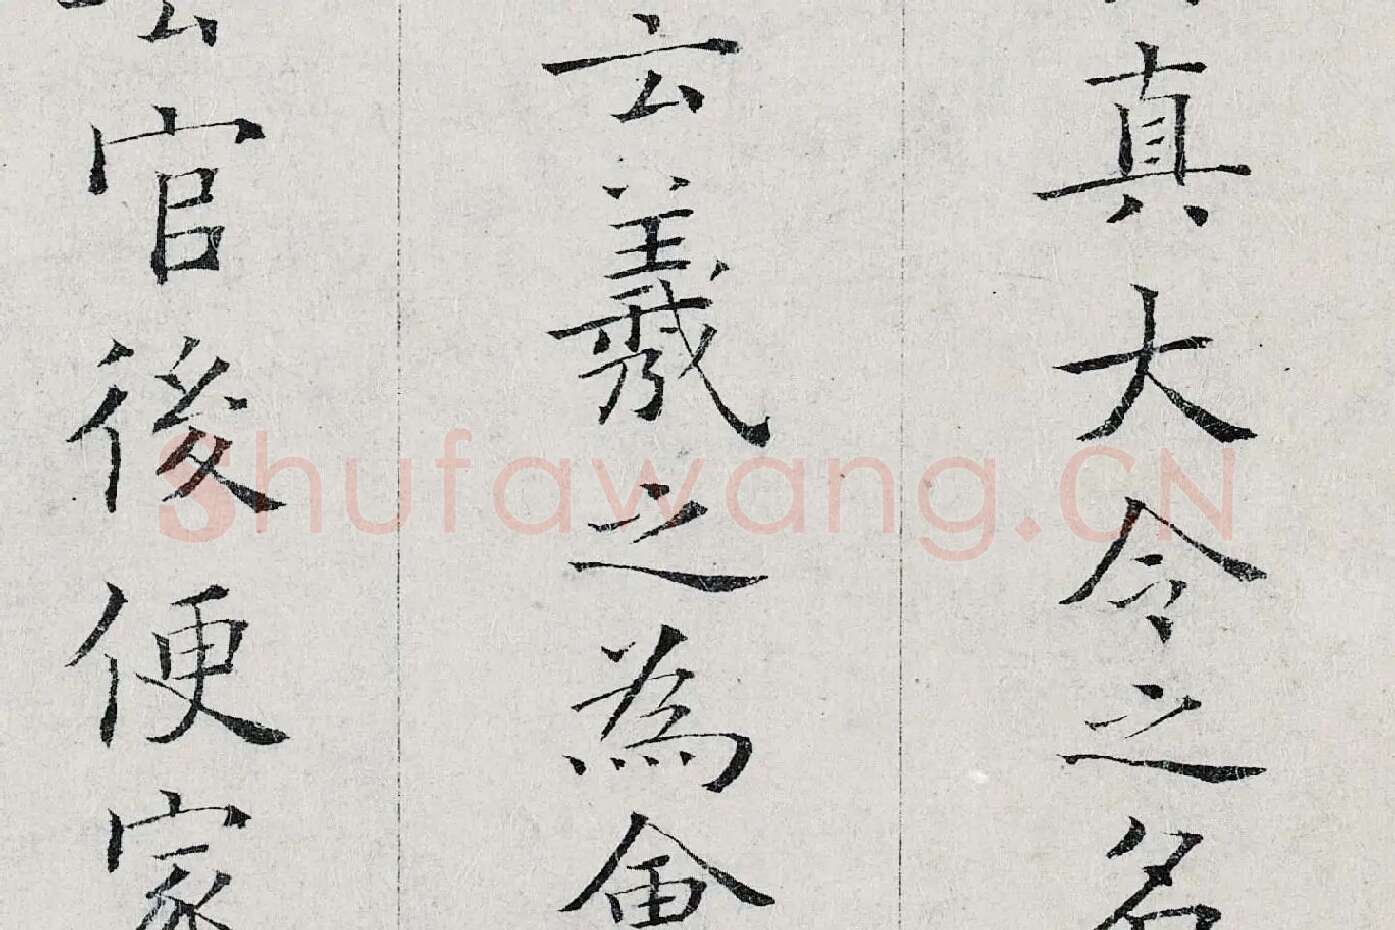 真大令之名
云羲之為會
去官後便家
Shufawang.CN